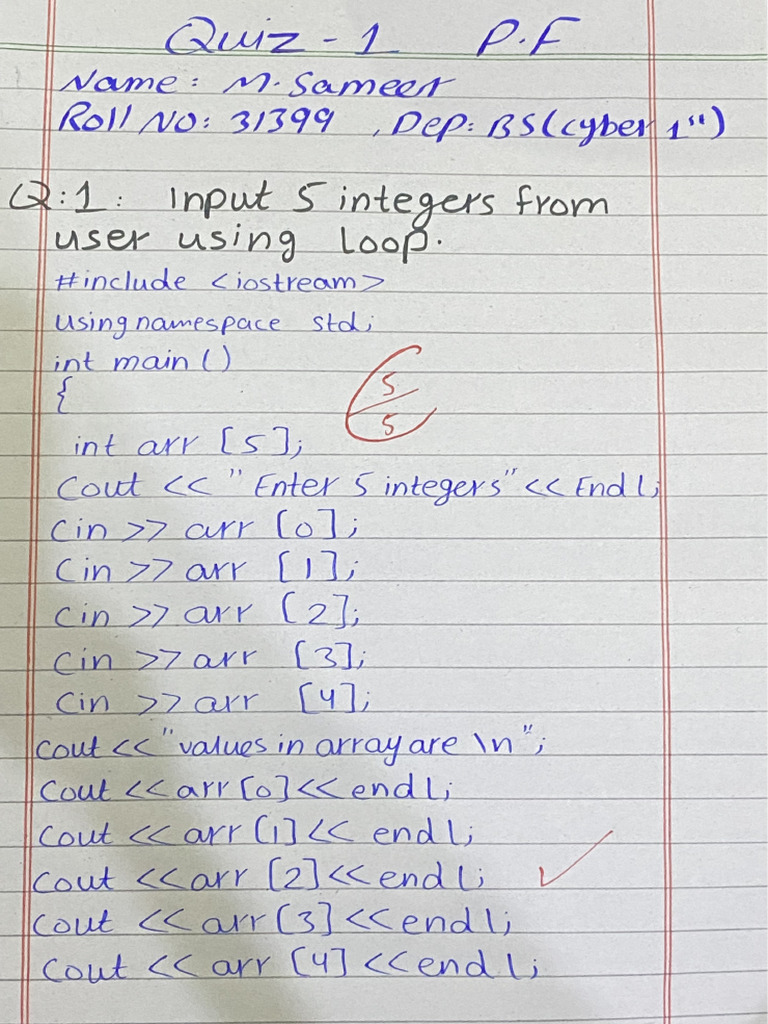 Quiz - 1 P.F
Name: M. Sameer
Roll No: 31399 , Dep: BS(cyber 1st)
Q:1: Input 5 integers from
user using loop.
#include <iostream>
using namespace std;
int main ()
{
5/5
int arr [5];
Cout << "Enter 5 integers" << Endl;
Cin >> arr [0];
Cin >> arr [1];
Cin >> arr [2];
Cin >> arr [3];
Cin >> arr [4];
Cout << "values in array are \n";
Cout << arr [0] << endl;
Cout << arr [1] << endl;
Cout << arr [2] << endl;
Cout << arr [3] << endl;
Cout << arr [4] << endl;